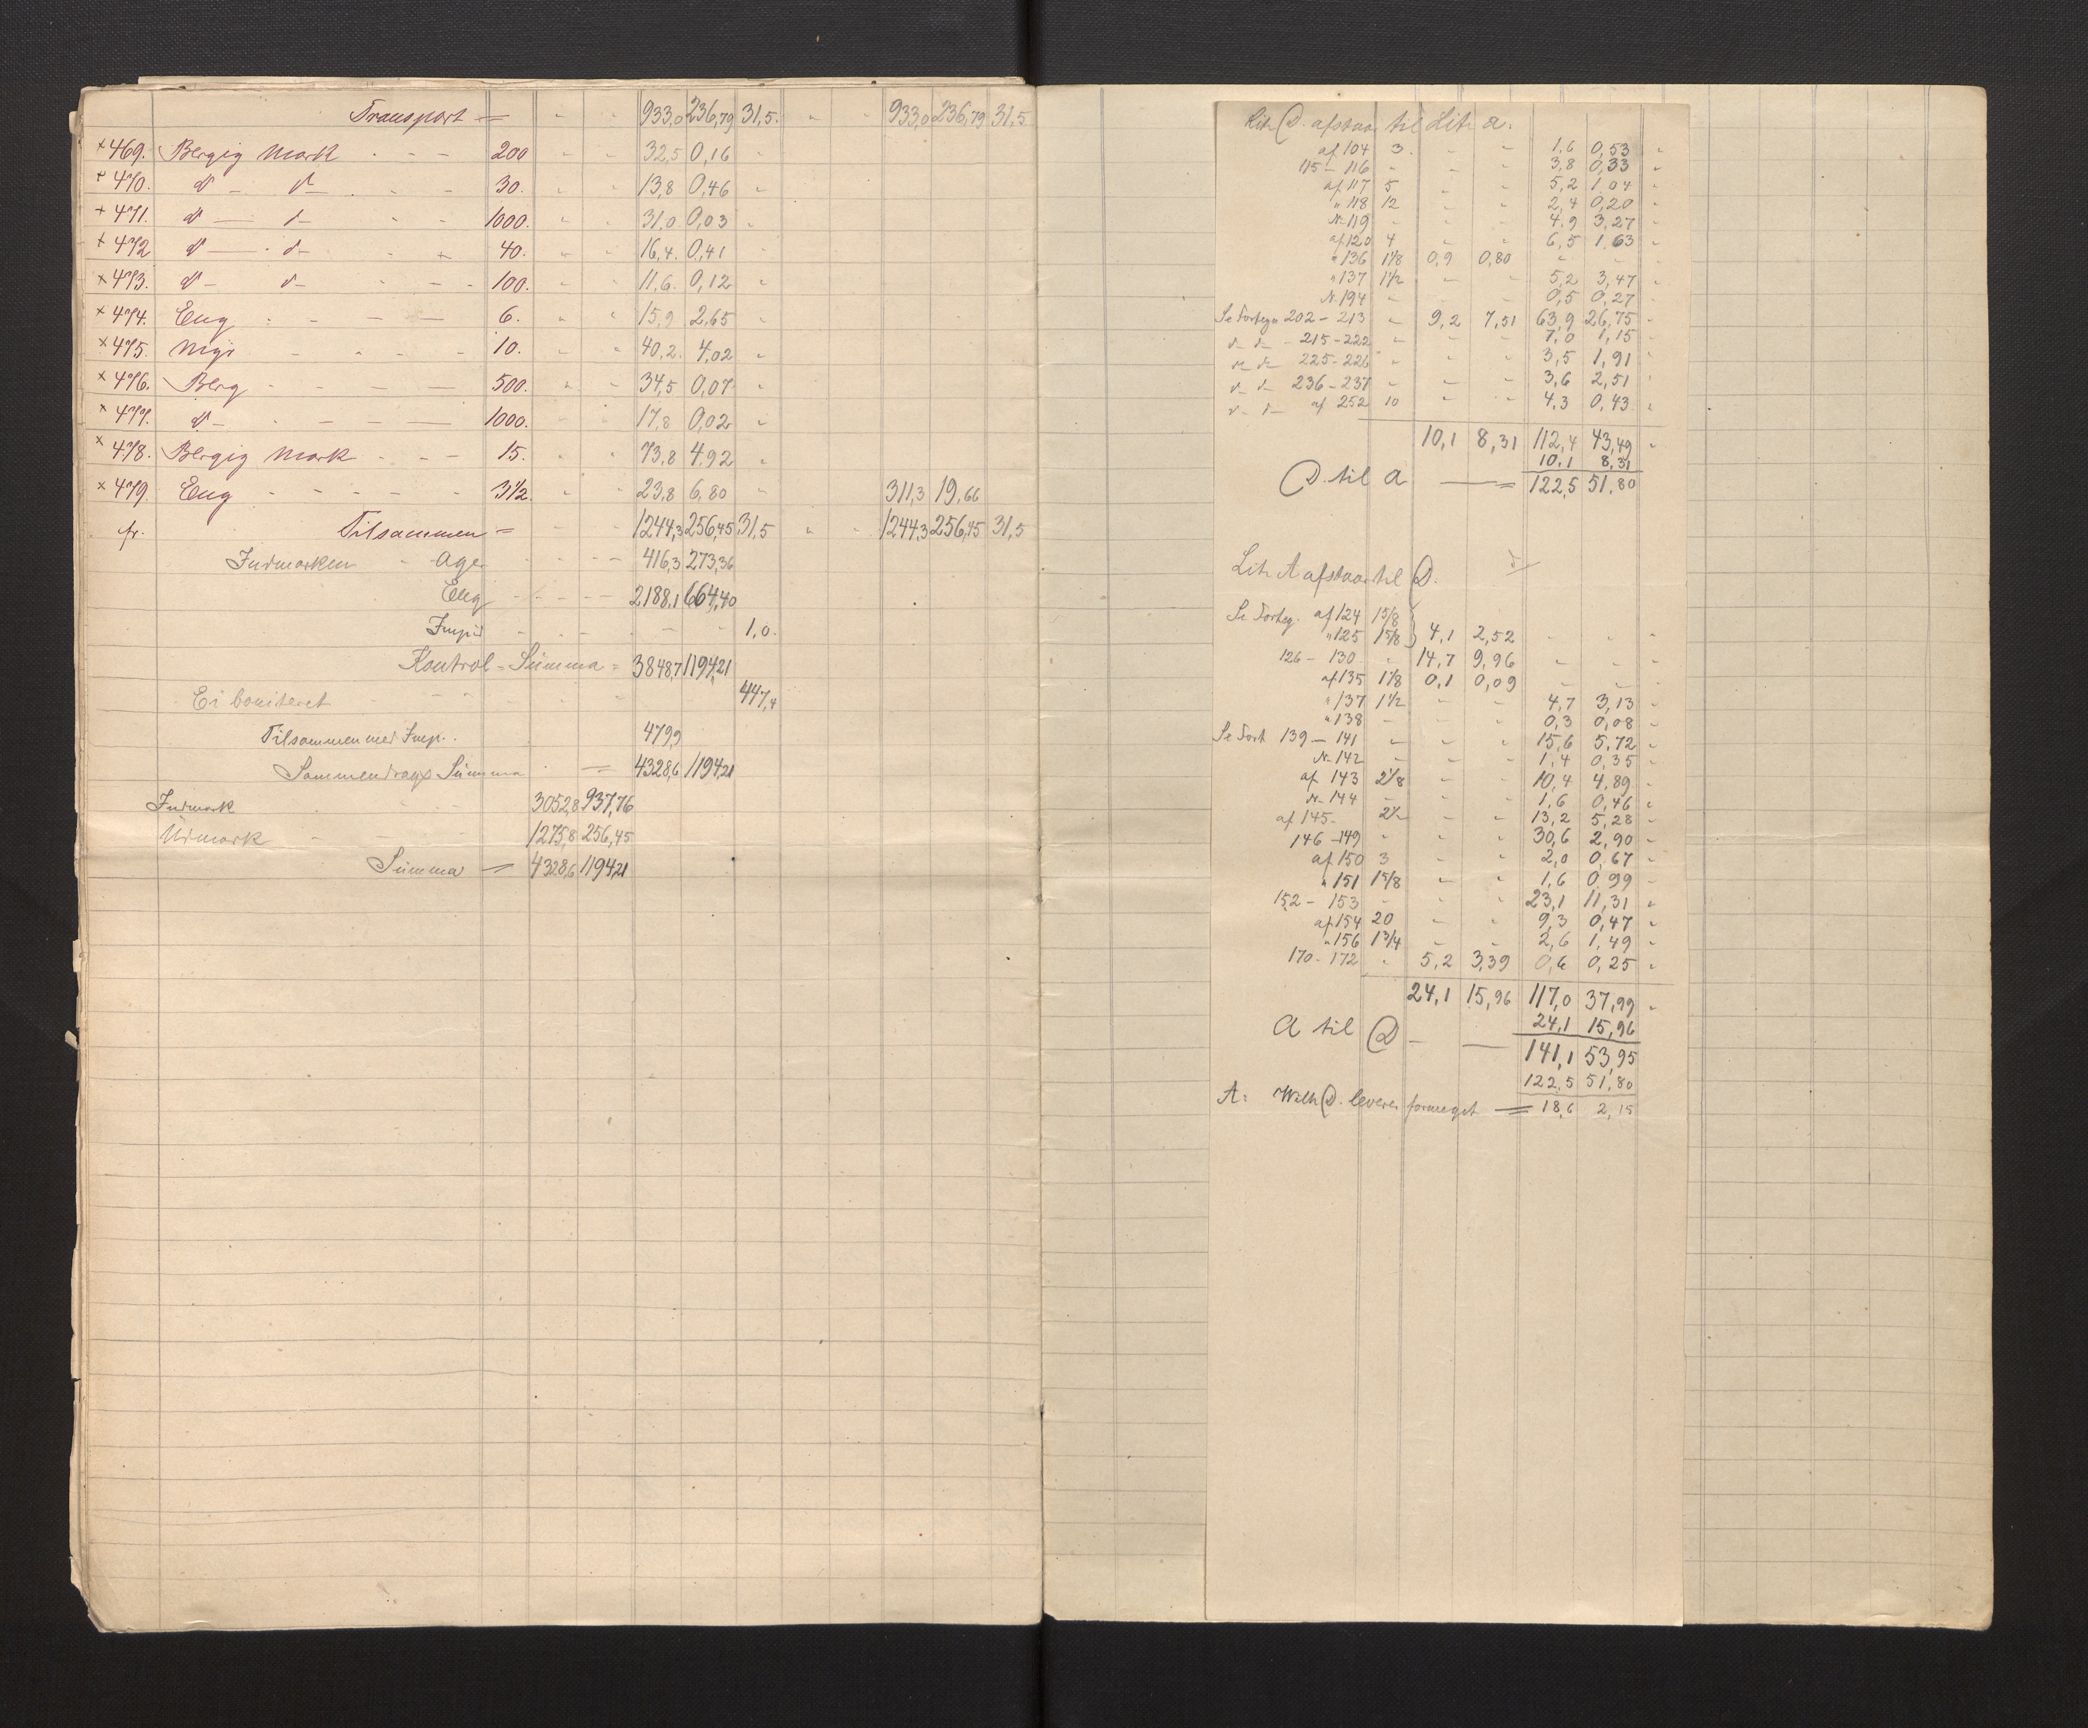 Transport = " " 933,0 236,79 31,5. " " 933,0 236,79 31,5
× 469. Bergig Mark - - - 200 " " 32,5 0,16 "
+ 470. d° - d° - - - 30. " " 13,8 0,46 "
+ 471. d° - d° - - 1000. " " 31,0 0,03 "
+ 472 d° - d° - - 40. " " 16,4. 0,41 "
× 473. d° - d° - - - 100. " " 11,6. 0,12 "
× 474. Eng - - - - 6. " " 15,9 2,65 "
× 475. Myr - - - - 10. " " 40,2. 4,02 "
× 476. Berg - - - - 500. " " 34,5 0,07 "
× 477. d° - - - - - 1000. " " 17,8 0,02 "
× 478. Bergig Mark - - - 15. " " 73,8 4,92 "
× 479. Eng - - - - - 3 1/2. " " 23,8 6,80 " 311,3 19,66
fr. Tilsammen = - - 1244,3 256,45 31,5 " " 1244,3 256,45 31,5
Indmarken - Ager - - - - 416,3 273,36
Eng - - - - 2188,1 664,40
Impd - - - - - 1,0.
Kontrol = Summa = 3848,7 1194,21
Ei boniteret - - - - - 447,4
Tilsammen med Imp. . 479,9
Sammendrags Summa - = 4328,6 1194,21
Indmark - - - 3052,8 937,76
Udmark - - - 1275,8 256,45
Summa = 4328,6 1194,21
Litr D. afstaar til Litr a.
af 104 3. " " 1,6 0,53 "
115 - 116 " " " 3,8 0,33 "
af 117 5 " " 5,2 1,04 "
" 118 12 " " 2,4 0,20 "
N- 119 " " " 4,9 3,27 "
af 120 4 " " 6,5 1,63 "
" 136 1 1/8 0,9 0,80 " " "
" 137 1 1/2 " " 5,2 3,47 "
N- 194 " " " 0,5 0,27 "
Se Forteg. 202 - 213 " 9,2 7,51 63,9 26,75 "
d° d° - 215 - 222 " " " 7,0 1,15 "
d° d° 225 - 226 " " " 3,5 1,91 "
d° d° 236 - 237 " " " 3,6 2,51 "
d° d° af 252 10 " " 4,3 0,43 "
10,1 8,31 112,4 43,49 "
10,1 8,31
D. til a = 122,5 51,80
Litr A afstaar til D.
Se Forteg. af 124 1 5/8
" 125 1 5/8 } 4,1 2,52 " " "
126 - 130 " 14,7 9,96 " " "
af 135 1 1/8 0,1 0,09 " " "
" 137 1 1/2 " " 4,7 3,13 "
" 138 " " " 0,3 0,08 "
Se Fort 139 - 141 " " " 15,6 5,72 "
N- 142 " " " 1,4 0,35 "
af 143 2 1/8 " " 10,4 4,89 "
N- 144 " " " 1,6 0,46 "
af 145 - " " 13,2 5,28 "
146 - 149 " " " 30,6 2,90 "
af 150 3 " " 2,0 0,67 "
" 151 1 5/8 " " 1,6 0,99 "
152 - 153 " " " 23,1 11,31 "
af 154 20 " " 9,3 0,47 "
" 156 1 3/4 " " 2,6 1,49 "
170 - 172 " 5,2 3,39 0,6 0,25 "
24,1 15,96 117,0 37,99 "
24,1 15,96
A til D - - 141,1 53,95
122,5 51,80
A: D. leverer formeget = 18,6 2,15